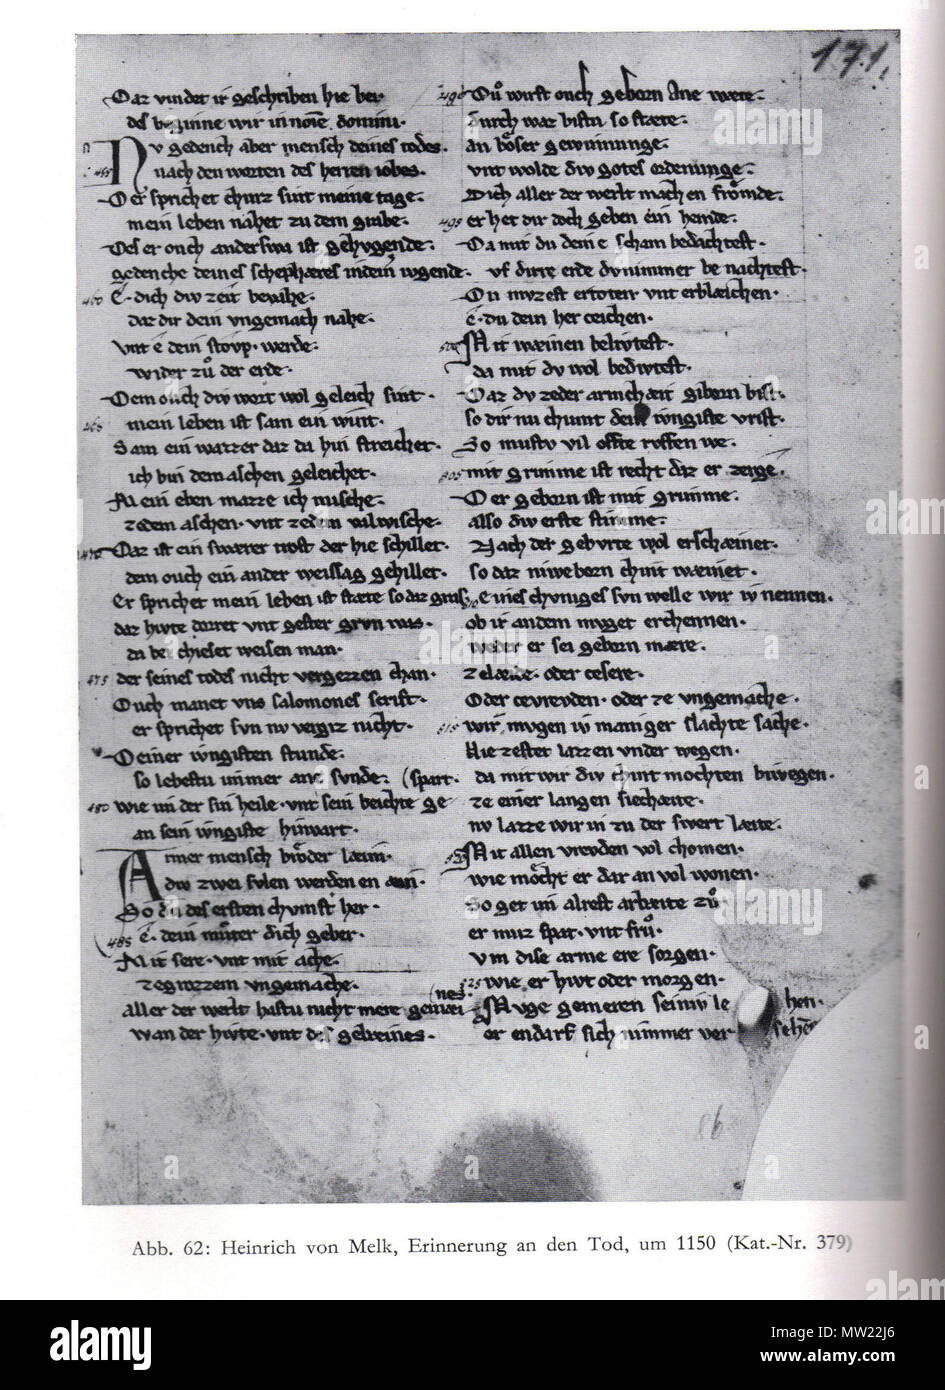 171.
Daz vindet ir geschriben hie bei·
des beginne wir in noīe domini·
NV gedench aber mensch deines todes·
455 nach den worten des herren iobes·
Der sprichet churz sint meine tage·
mein leben nahet zu dem grabe·
Des er ouch anderswa ist gehvgende·
gedenche deines schephæres in dein ivgende·
460 E· dich div zeit bevahe·
daz dir dein vngemach nahe·
vnt e dein stovp· werde·
wider zů der erde·
Dem ouch div wort wol geleich sint·
465 mein leben ist sam ein wint·
Sam ein wazzer daz da hin streichet·
ich bin dem aschen geleichet·
Mein eben mazze ich mische·
zedem aschen· vnt zedem vilwische·
470 Daz ist ein swærer trost der hie schillet·
dem ouch ein ander weissag gehillet·
Er sprichet mein leben ist stæte so daz gras
daz hivte dorret vnt gester grvn was·
da bei chieset weisen man·
475 der seines todes nicht vergezzen chan·
Ouch manet vns salomones scrift·
er sprichet svn nv vergiz nicht·
Deiner ivngisten stunde·
so lebestu immer ane svnde· (spart·
480 wie im der sin heile· vnt sein beichte ge
an sein ivngiste hinvart·
Armer mensch brŏder læim·
div zwei svlen werden en ein·
So du des ersten chvmst her·
485 e· dein mŭter dich geber·
Mit sere· vnt mit ache·
zegrozzem vngemache·
(nes·
aller der werlt hastu nicht mere gemei
wan der hivte· vnt des gebeines·
490 Dů wirst ouch geborn ane wæte·
durch waz bistu so stæte·
an bŏser gewinnunge·
vnt wolde div gotes ordenunge·
Dich aller der werlt machen frŏmde·
495 er het dir doch geben ein hemde·
Da mit du deine scham bedachtest·
vf dirre erde dv nimmer be nachtest·
Du mvzest ertoten vnt erblæichen·
e· du dein her ceichen·
500 Mit wæinen belivtest·
da mit dv wol bedivtest·
Daz dv zeder armchæit giborn bist·
so dir nu chumt dein ivngiste vrist·
So mustv vil offte rvffen we·
505 mit grimme ist recht daz er zerge·
Der geborn ist mit grimme·
also div erste stimme·
Nach der gebvrte wol erschæinet·
so daz niwe born chint wæinet·
510 Eines chvniges svn welle wir iv nennen·
ob ir an dem mvget erchennen·
weder er sei geborn mære·
zelæide· oder cesere·
Oder cevrevden· oder ze vngemache·
515 wir mvgen iv maniger slachte sache·
Hie zester lazzen vnder wegen·
da mit wir div chint mochten biwegen·
ze einer langen siechæite·
nv lazze wir in zu der swert læite·
520 Mit allen vrevden vol chomen·
wie mŏcht er dar an vol wonen·
So get im alrest arbæite zů·
er muz spat· vnt frů·
vm dise arme ere sorgen·
525 wie er hivt oder morgen·
Mvge gemeren seiniv le hen·
er endarf sich nimmer ver sehen
Abb. 62: Heinrich von Melk, Erinnerung an den Tod, um 1150 (Kat.-Nr. 379)
alamy
Image ID: MW22J6
www.alamy.com